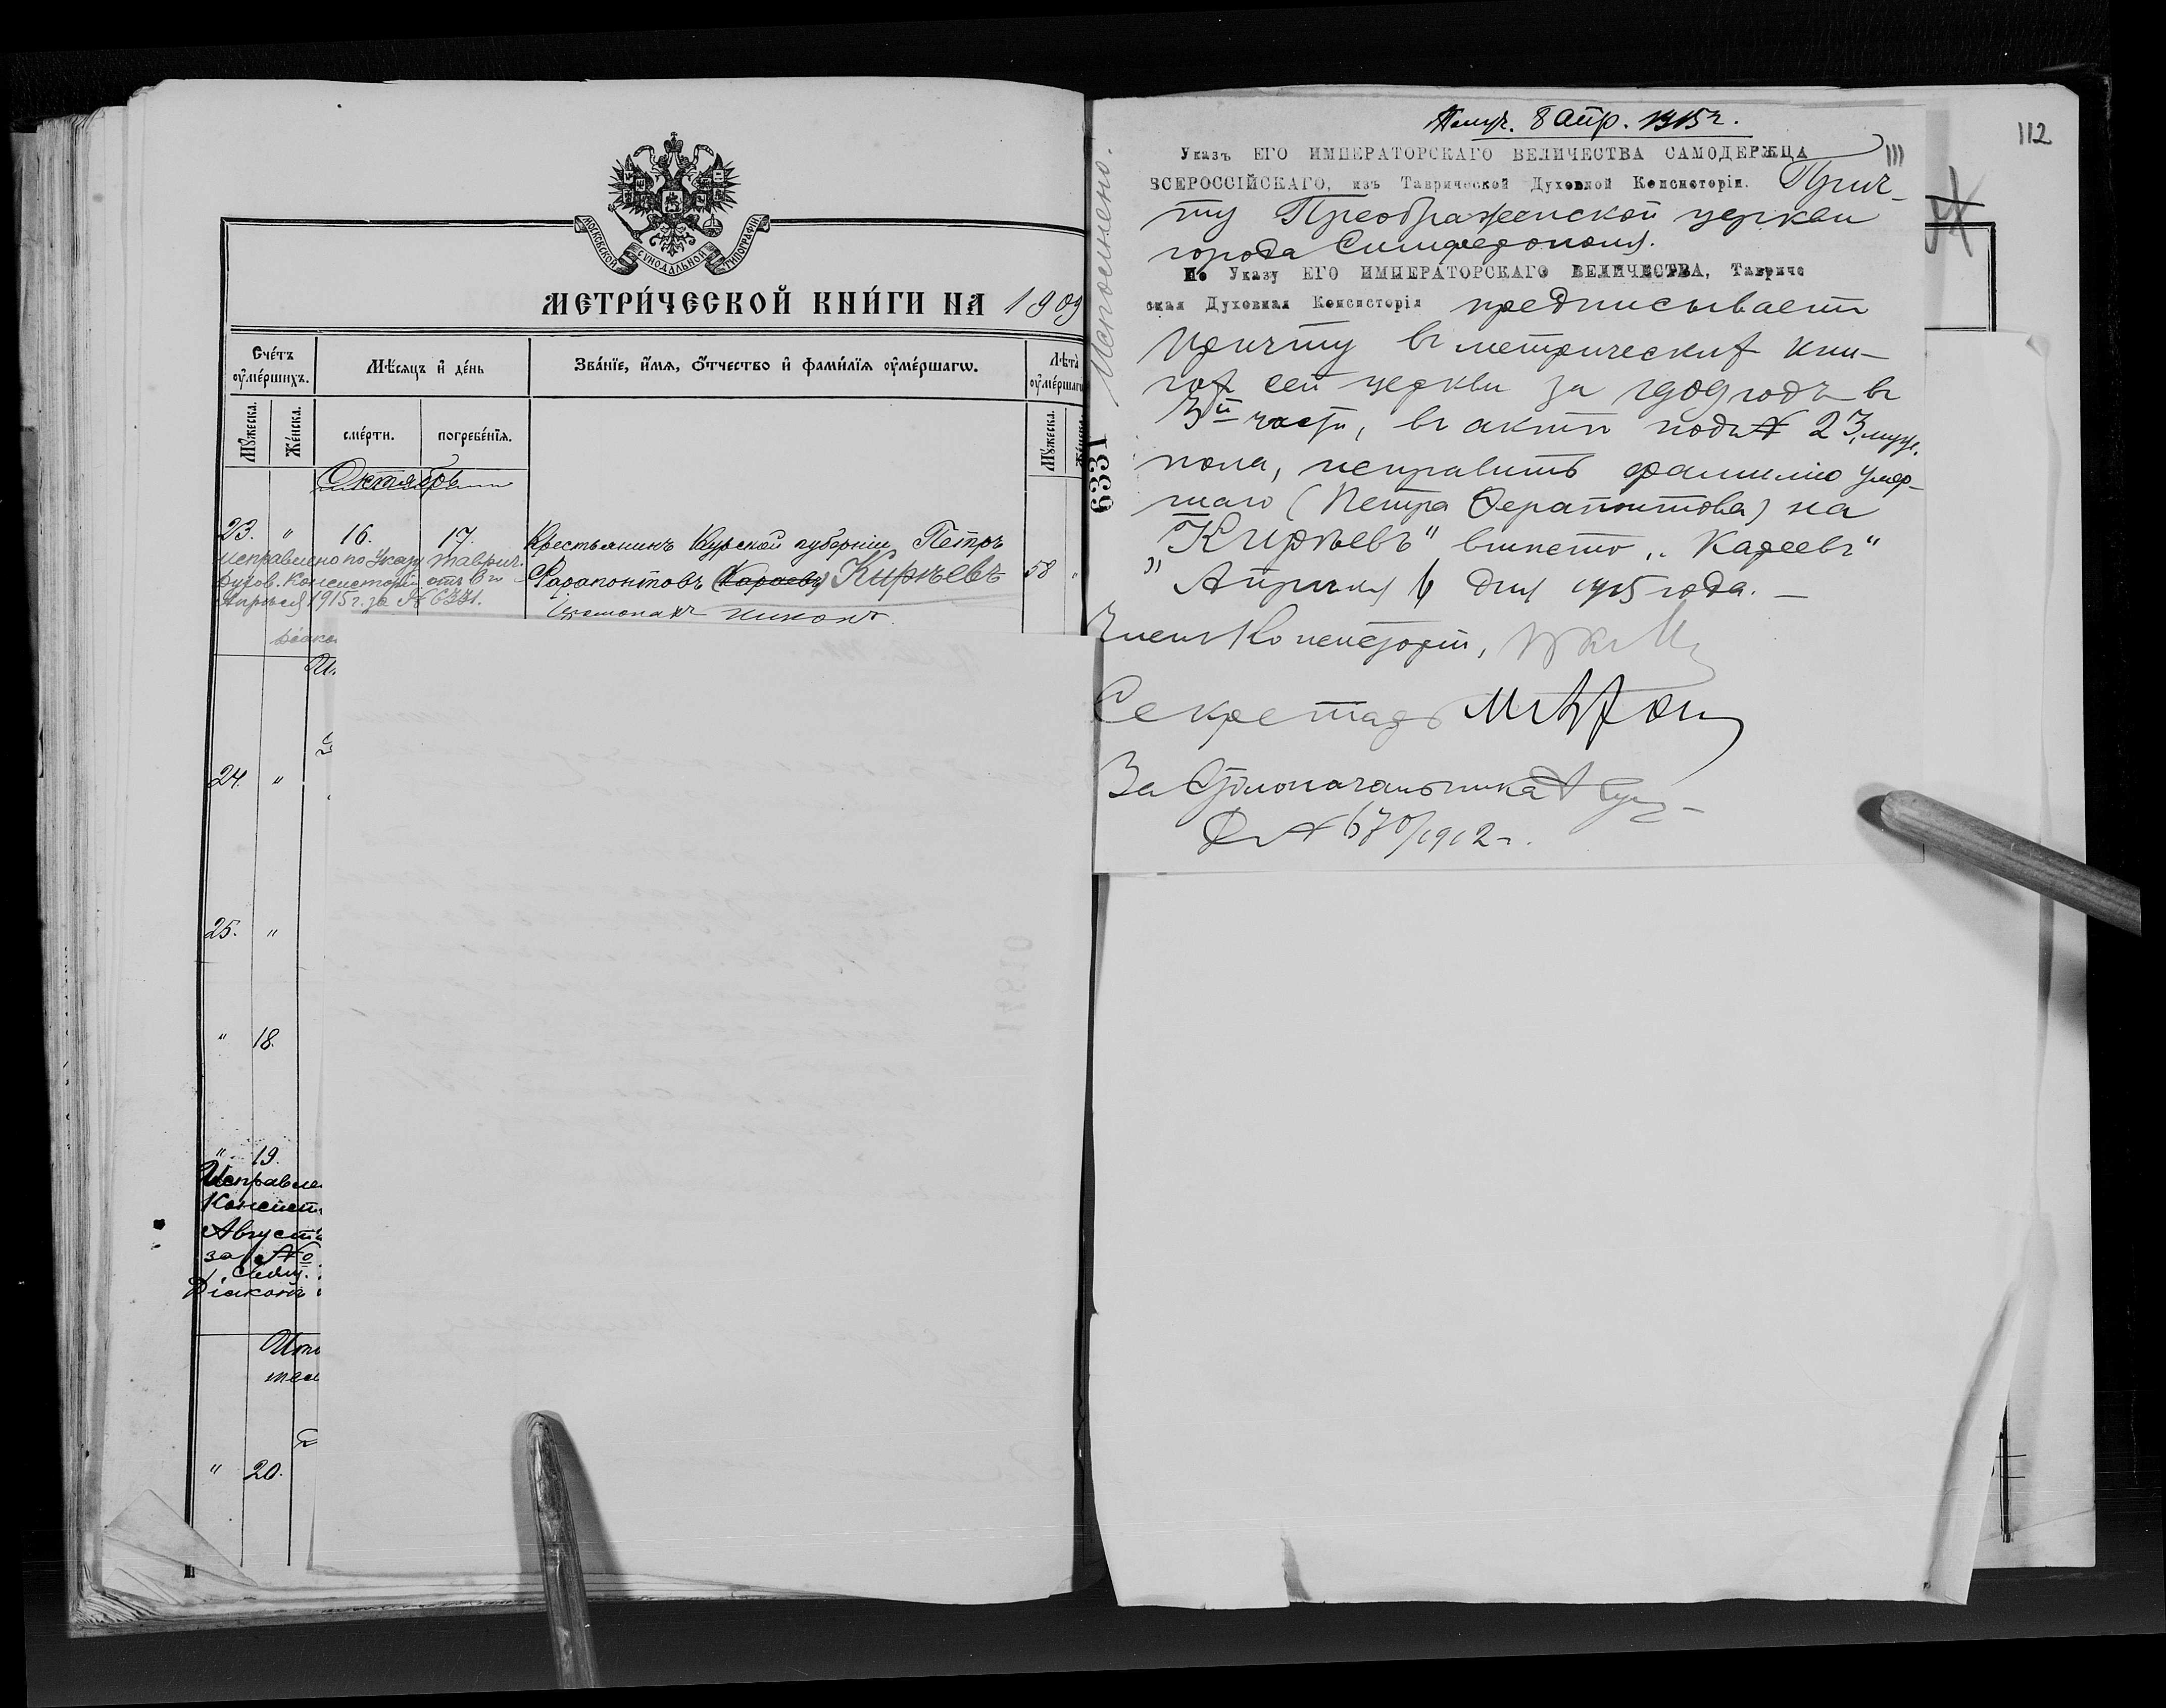 МОСКОВСКОЙ СѴНОДАЛЬНОЙ ТИПОГРАФІИ
МЕТРИ́ЧЕСКОЙ КНИ́ГИ НА 1909
Сче́тъ ᲂу҆ме́ршихъ.
Мѣ́сяцъ и҆ де́нь
Зва́нїе, и҆́мѧ, ѻ҆́тчество и҆ фами́лїѧ ᲂу҆ме́ршагѡ.
Лѣ́та ᲂу҆ме́ршаг
Мꙋ́жеска.
Же́нска.
сме́рти.
погребе́нїѧ.
Мꙋ́жеска.
Октябрь
23. " 16. 17. Крестьянинъ Курской губерніи Петръ
Фарапонтовъ (Караевъ) Кирѣевъ 58 "
Исправлено по Указу Таврич.
Духов. Консисторіи отъ 6го
Апрѣля 1915 г. за № 6331.
Іеромонахъ Никонъ
24. "
25. "
" 18.
" 19.
Исправле
Консист
Август
за №
Діаконъ
Ито
" 20.
112
111
Получ. 8 Апр. 1915 г.
Исполнено.
Указъ ЕГО ИМПЕРАТОРСКАГО ВЕЛИЧЕСТВА САМОДЕРЖЦА
ВСЕРОССІЙСКАГО, изъ Таврической Духовной Консисторіи. Прич-
ту Преображенской церкви
города Симферополя.
По Указу ЕГО ИМПЕРАТОРСКАГО ВЕЛИЧЕСТВА, Тавриче
ская Духовная Консисторія предписываетъ
причту въ метрических кни-
гах сей церкви за 1909 годъ въ
3й части, въ актѣ подъ № 23, муж.
пола, исправить фамилію умер-
шаго (Петра Ферапонтова) на
"Кирѣевъ" вмѣсто "Кареевъ"
Апрѣля 6 дня 1915 года. —
6331
Членъ Консисторіи,
Секретарь
За Столоначальника
Д № 670/1912 г.